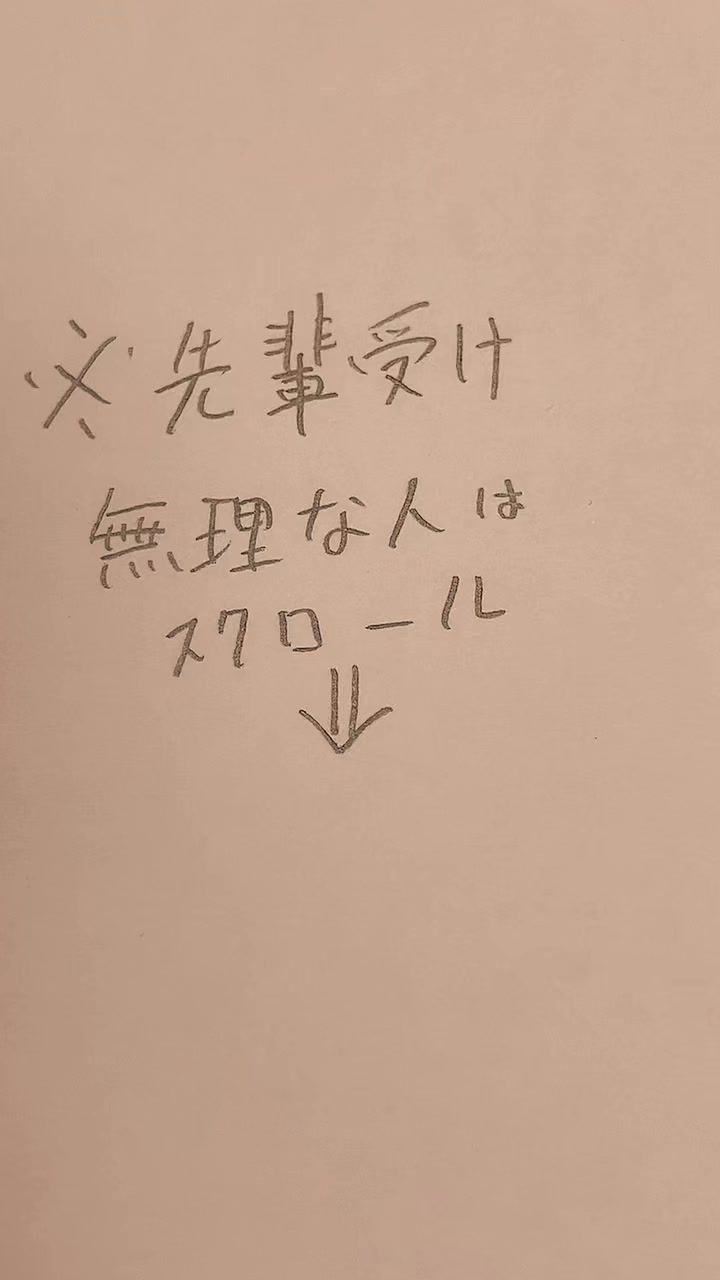 ※先輩受け
無理な人は
スクロール
⇓